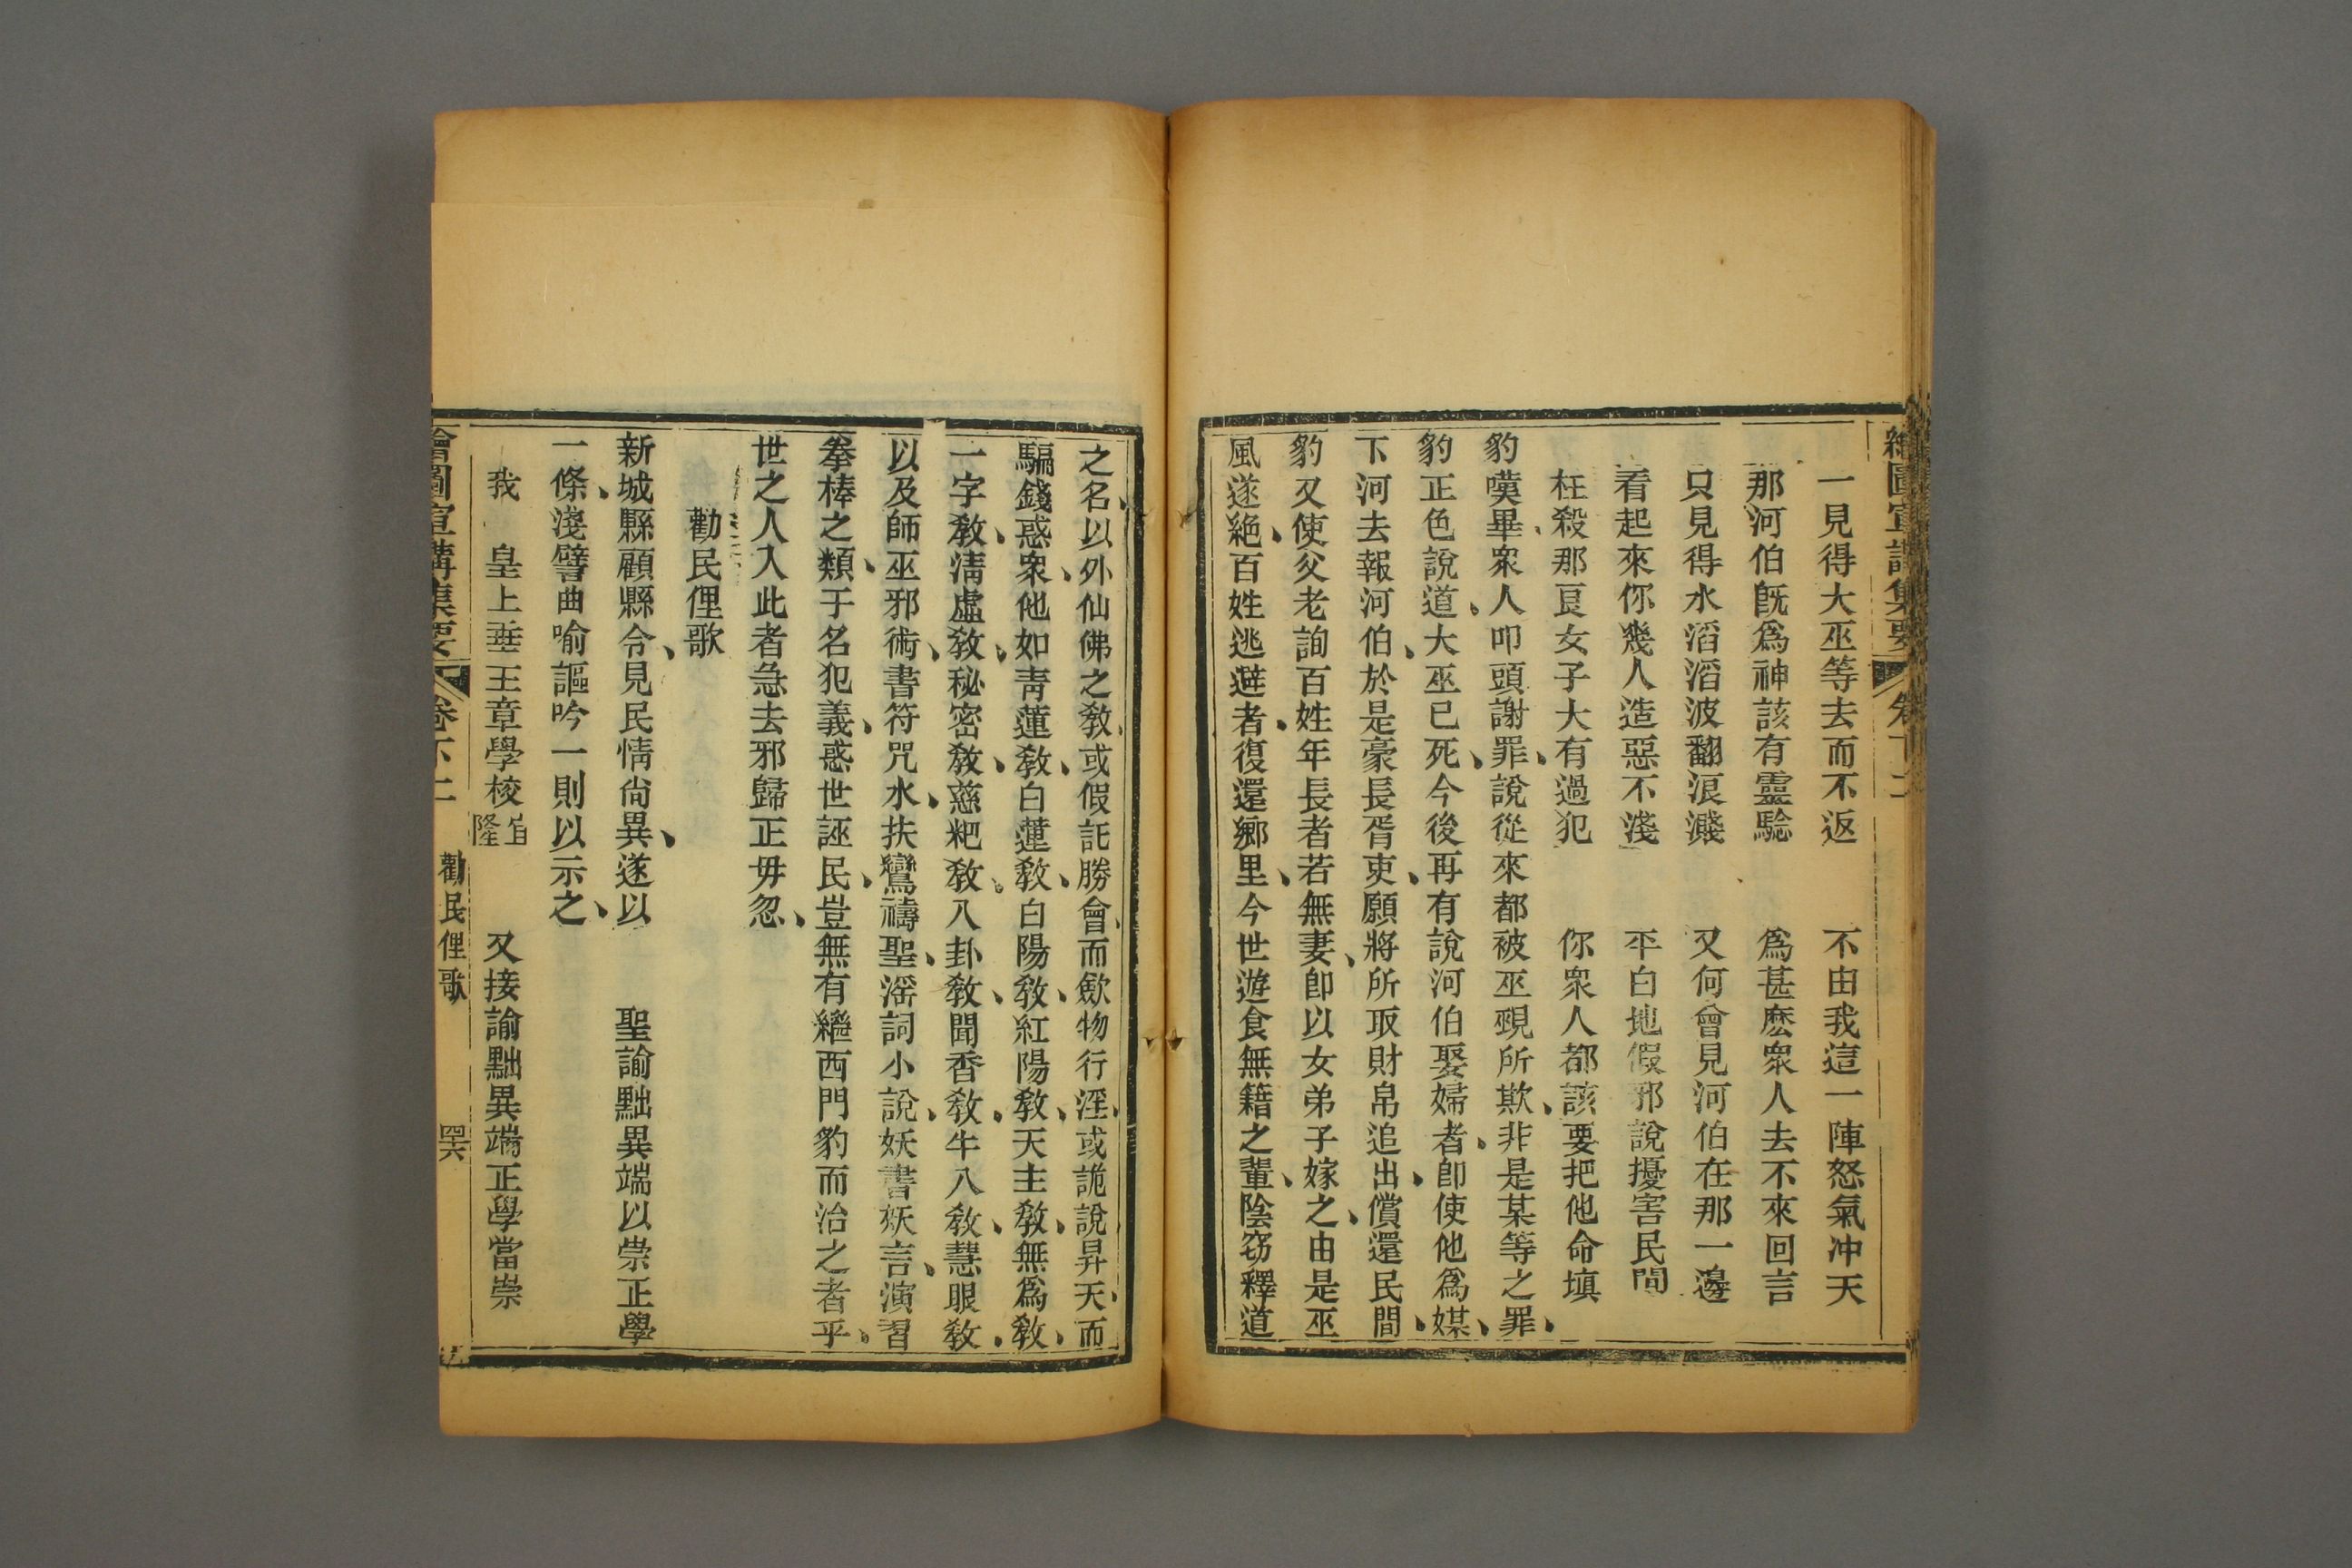 繪圖宣講集要 卷下二
一見得大巫等去而不返 不由我這一陣怒氣冲天
那河伯旣爲神該有靈驗 爲甚麽衆人去不來回言
只見得水滔滔波翻浪濺 又何曾見河伯在那一邊
看起來你幾人造惡不淺 平白地假邪說擾害民間
枉殺那良女子大有過犯 你衆人都該要把他命塡
豹嘆畢、衆人叩頭謝罪、說從來都被巫覡所欺、非是某等之罪、
豹正色說道、大巫已死、今後再有說河伯娶婦者、卽使他爲媒、
下河去報河伯、於是豪長胥吏、願將所取財帛追出、償還民間、
豹又使父老詢百姓年長者若無妻、卽以女弟子嫁之、由是巫
風遂絶、百姓逃避者、復還鄉里、今世遊食無籍之輩、陰窃釋道
之名、以外仙佛之敎、或假託勝會、而歛物行淫、或詭說昇天、而
騙錢惑衆、他如靑蓮敎、白蓮敎、白陽敎、紅陽敎、天主敎、無爲敎、
一字敎、淸虛敎、秘密敎、慈粑敎。八卦敎、聞香敎、牛八敎、慧眼敎、
以及師巫邪術、書符咒水、扶鸞禱聖、滛詞小說、妖書妖言、演習
拳棒之類、于名犯義、惑世誣民、豈無有繼西門豹而治之者乎、
世之人入此者急去邪歸正毋忽、
勸民俚歌
新城縣顧縣令、見民情尙異、遂以 聖諭黜異端以崇正學
一條、淺譬曲喻謳吟一則以示之、
我 皇上垂王章學校宜隆 又接諭黜異端正學當崇
繪圖宣講集要 卷下二 勸民俚歌 罢六